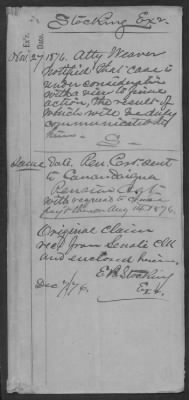 Stocking Exr.
Ex'r.
Date.
Nov. 27 1876. Atty Weaver
notified that case is
under consideration
with a view to final
action, the result of
which will be duly
communicated to
him. — S —
Same Date. Pen Cert. sent
to Canandaigua
Pension Agt.
with request to
payt thereon Aug 14 1876.
Original claim
recd from Senate Clk
and enclosed herein.
E B Stocking
Exr.
Dec 7/76.